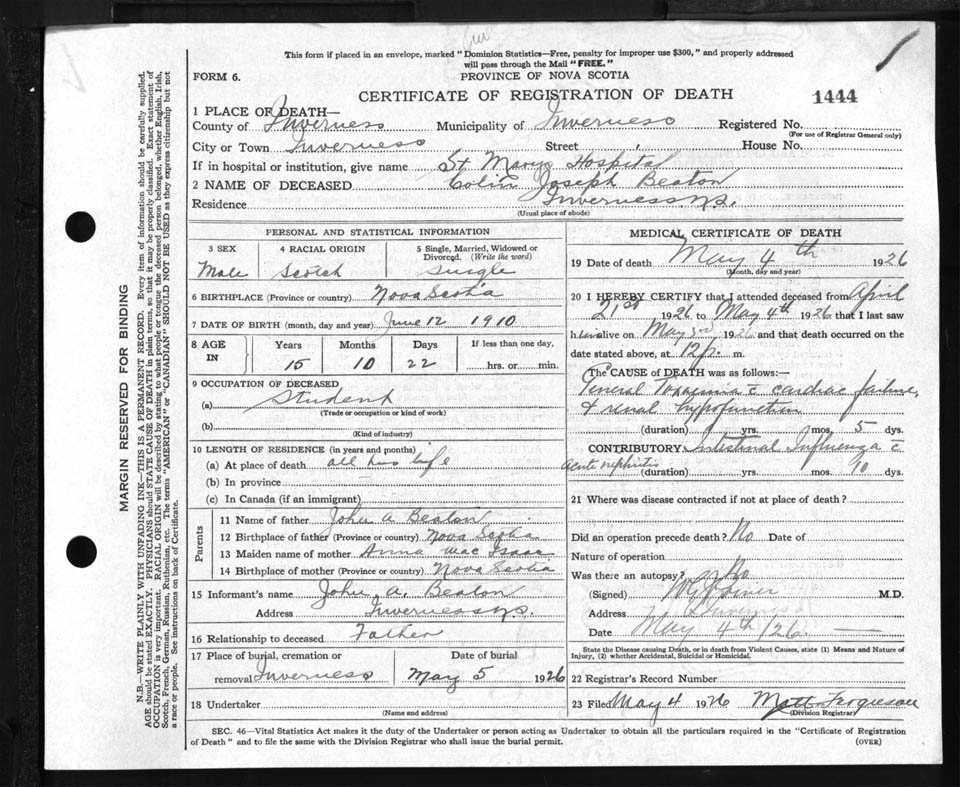 This form if placed in an envelope, marked "Dominion Statistics—Free, penalty for improper use $300," and properly addressed
will pass through the Mail "FREE."
FORM 6.
PROVINCE OF NOVA SCOTIA
CERTIFICATE OF REGISTRATION OF DEATH
1444
1 PLACE OF DEATH—
County of Inverness Municipality of Inverness Registered No.
(For use of Registrar General only)
City or Town Inverness Street House No.
If in hospital or institution, give name St. Marys Hospital
2 NAME OF DECEASED Colin Joseph Beaton
Residence Inverness N.S.
(Usual place of abode)
PERSONAL AND STATISTICAL INFORMATION
3 SEX 4 RACIAL ORIGIN 5 Single, Married, Widowed or
Divorced. (Write the word)
Male Scotch Single
6 BIRTHPLACE (Province or country) Nova Scotia
7 DATE OF BIRTH (month, day and year) June 12 1910
8 AGE IN Years Months Days If less than one day,
15 10 22 hrs. or min.
9 OCCUPATION OF DECEASED
(a) Student
(Trade or occupation or kind of work)
(b)
(Kind of industry)
10 LENGTH OF RESIDENCE (in years and months)
(a) At place of death all his life
(b) In province
(c) In Canada (if an immigrant)
Parents
11 Name of father John A Beaton
12 Birthplace of father (Province or country) Nova Scotia
13 Maiden name of mother Anna Mac Isaac
14 Birthplace of mother (Province or country) Nova Scotia
15 Informant's name John A. Beaton
Address Inverness N.S.
16 Relationship to deceased Father
17 Place of burial, cremation or Date of burial
removal Inverness May 5 1926
18 Undertaker
(Name and address)
MEDICAL CERTIFICATE OF DEATH
19 Date of death May 4th 1926
(Month, day and year)
20 I HEREBY CERTIFY that I attended deceased from April
21st 1926 to May 4th 1926 that I last saw
him alive on May 3rd 1926 and that death occurred on the
date stated above, at 12 p. m.
The CAUSE of DEATH was as follows:—
General Toxaemia c̄ cardiac failure,
& renal hypofunction
(duration) yrs. mos. 5 dys.
CONTRIBUTORY Intestinal Influenza c̄
Acute nephritis
(duration) yrs. mos. 10 dys.
21 Where was disease contracted if not at place of death?
Did an operation precede death? No Date of
Nature of operation
Was there an autopsy? No
(Signed) M.D.
Address Inverness
Date May 4th /26
State the Disease causing Death, or in death from Violent Causes, state (1) Means and Nature of
Injury, (2) whether Accidental, Suicidal or Homicidal.
22 Registrar's Record Number
23 Filed May 4 1926 Matt. Ferguson
(Division Registrar)
SEC. 46—Vital Statistics Act makes it the duty of the Undertaker or person acting as Undertaker to obtain all the particulars required in the "Certificate of Registration
of Death" and to file the same with the Division Registrar who shall issue the burial permit.
(OVER)
MARGIN RESERVED FOR BINDING
N.B.—WRITE PLAINLY WITH UNFADING INK—THIS IS A PERMANENT RECORD. Every item of information should be carefully supplied.
AGE should be stated EXACTLY. PHYSICIANS should STATE CAUSE OF DEATH in plain terms, so that it may be properly classified. Exact statement of
OCCUPATION is very important. RACIAL ORIGIN will be described by stating to what people or tongue the deceased person belonged, whether English, Irish,
Scotch, French, German, Russian, Ruthenian, etc. The terms "AMERICAN" or "CANADIAN" SHOULD NOT BE USED as they express citizenship but not
a race or people. See instructions on back of Certificate.